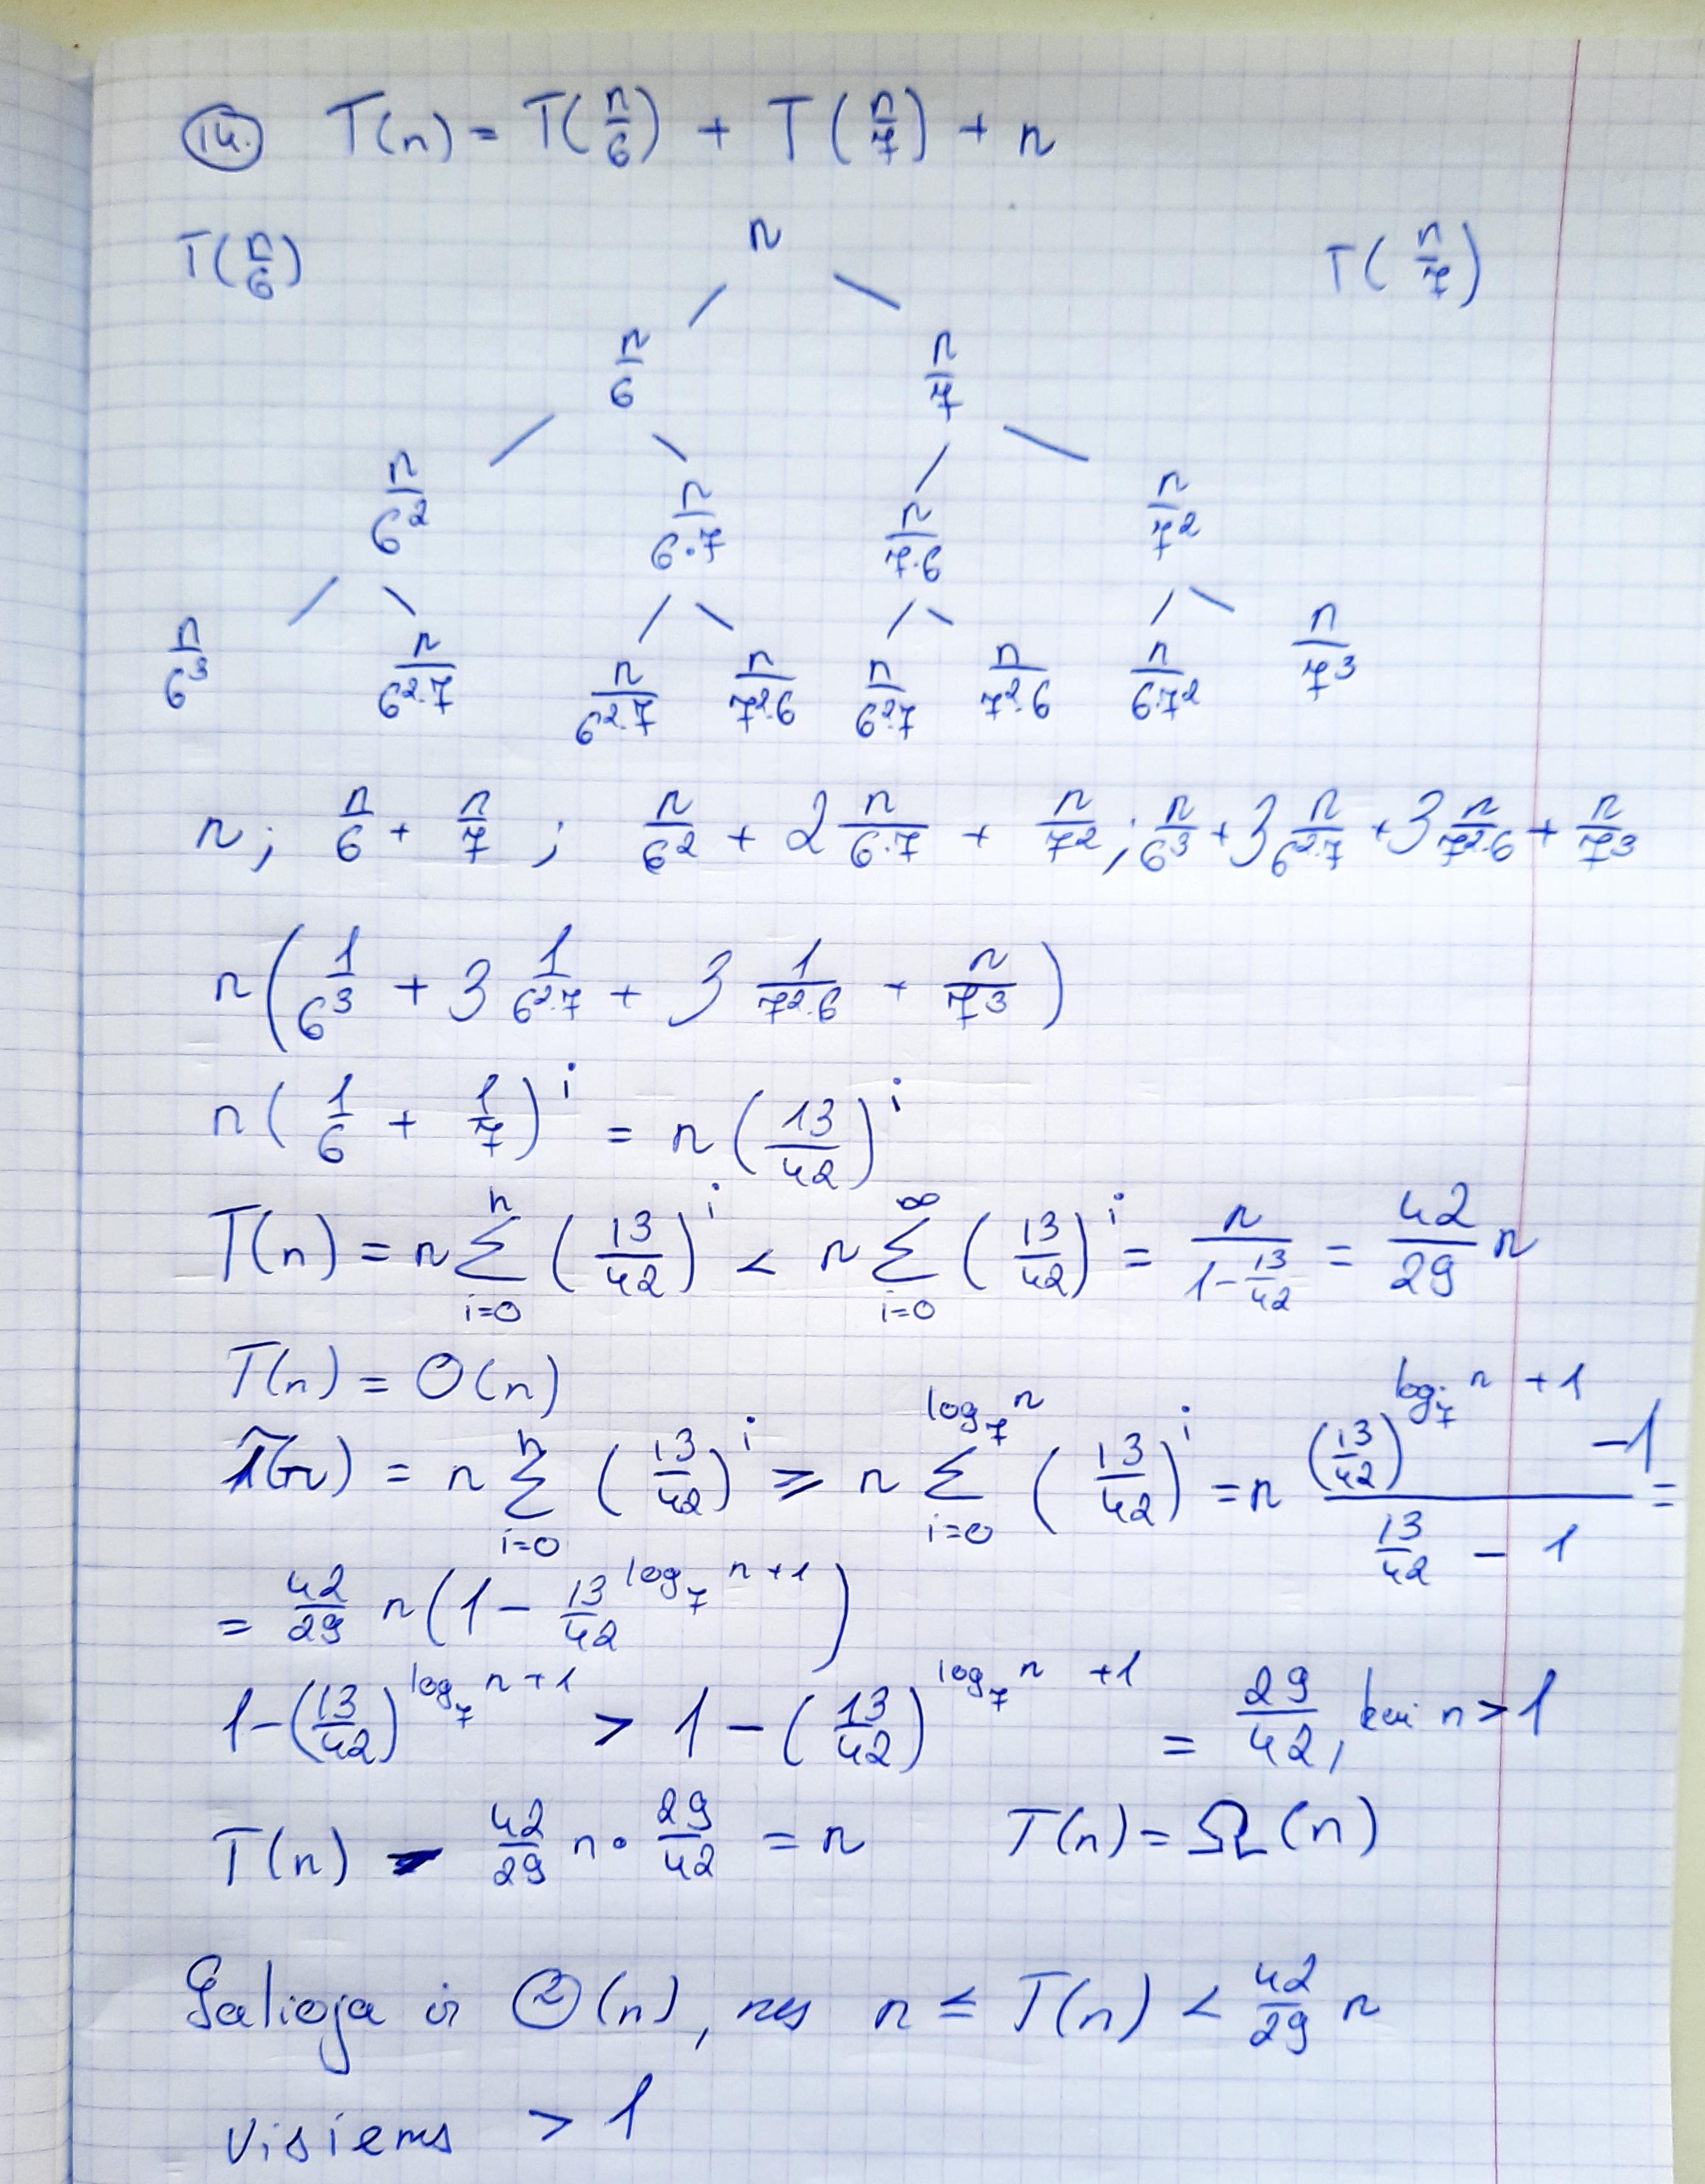 14. T(n) = T(n/6) + T(n/7) + n
T(n/6) n T(n/7)
n/6 n/7
n/6² n/6·7 n/7·6 n/7²
n/6³ n/6²·7 n/6²·7 n/7²·6 n/6²·7 n/7²·6 n/6·7² n/7³
n; n/6 + n/7; n/6² + 2 n/6·7 + n/7²; n/6³ + 3 n/6²·7 + 3 n/7²·6 + n/7³
n(1/6³ + 3 1/6²·7 + 3 1/7²·6 + n/7³)
n(1/6 + 1/7)^i = n(13/42)^i
T(n) = n ∑_{i=0}^{n} (13/42)^i < n ∑_{i=0}^{∞} (13/42)^i = n/(1-13/42) = 42/29 n
T(n) = O(n)
T(n) = n ∑_{i=0}^{n} (13/42)^i ≥ n ∑_{i=0}^{log₇ n} (13/42)^i = n ((13/42)^{log₇ n + 1} - 1)/(13/42 - 1) =
= 42/29 n(1 - 13/42^{log₇ n+1})
1-(13/42)^{log₇ n+1} > 1-(13/42)^{log₇ n +1} = 29/42, kai n > 1
T(n) - 42/29 n · 29/42 = n T(n) = Ω(n)
Galioja ir Θ(n), nes n ≤ T(n) < 42/29 n
visiems > 1